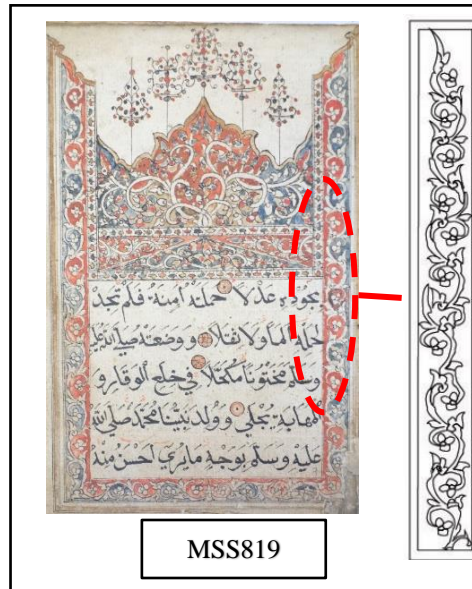 عدلا حملته آمنة فلم تجد
ألما ولا ثقلا ووضعته صلى الله عليه
وسلم مختونا مكحلا في خلع الوقار و
المهابة يجلي وولد نبينا محمد صلى الله
عليه وسلم بوجه ما يري احسن منه
MSS819